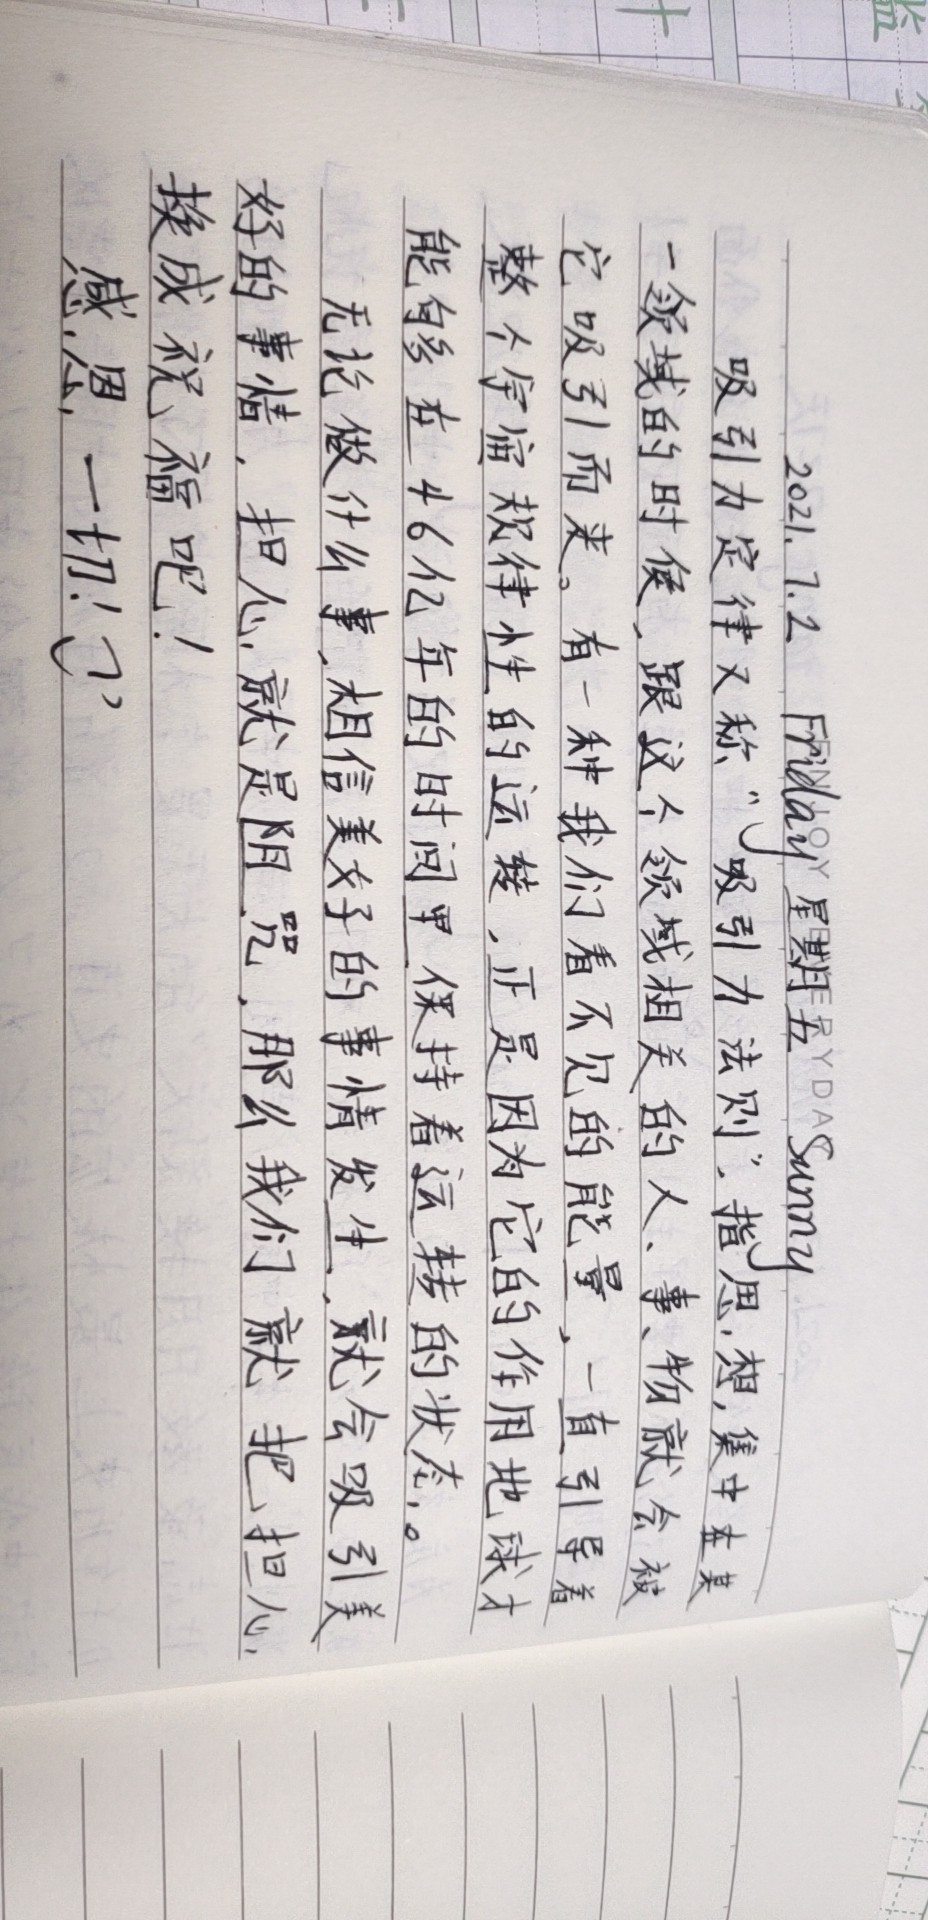 ENJOY EVERYDAY
2021.7.2 Friday 星期五 Sunny
吸引力定律又称“吸引力法则”，指思想集中在某
一领域的时候，跟这个领域相关的人、事、物就会被
它吸引而来。有一种我们看不见的能量，一直引导着
整个宇宙规律性的运转，正是因为它的作用地球才
能够在46亿年的时间里保持着运转的状态。
无论做什么事，相信美好的事情发生，就会吸引美
好的事情，担心就是阴咒，那么我们就把担心
换成祝福吧！
感恩一切！